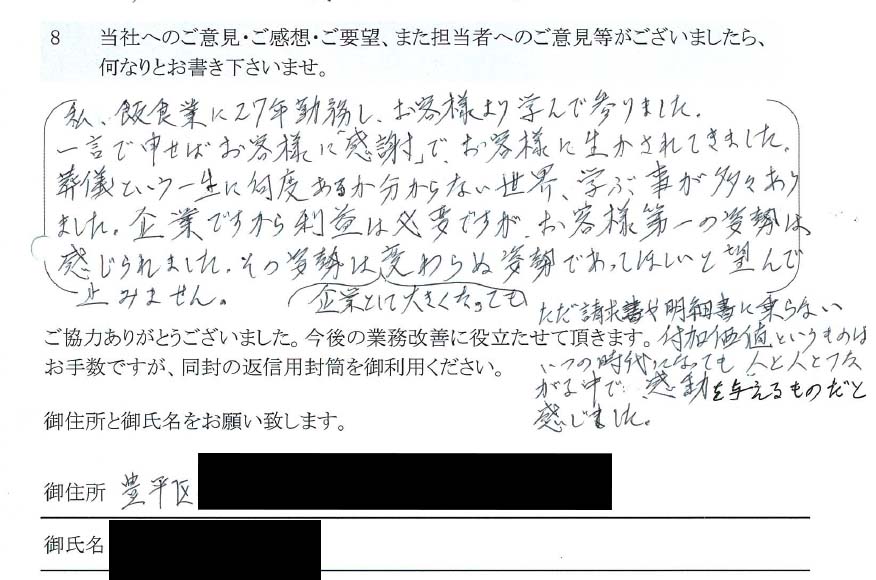 8 当社へのご意見・ご感想・ご要望、また担当者へのご意見等がございましたら、
何なりとお書き下さいませ。
私、飯食業に27年勤務し、お客様より学んで参りました。
一言で申せばお客様に「感謝」で、お客様に生かされてきました。
葬儀という一生に何度あるか分からない世界、学ぶ事が多々あり
ました。企業ですから利益は必要ですが、お客様第一の姿勢は
感じられました。その姿勢は変わらぬ姿勢であってほしいと望んで
止みません。
企業として大きくなっても
ただ請求書や明細書に乗らない
付加価値というものは
いつの時代になっても人と人とつな
がる中で感動を与えるものだと
感じました。
ご協力ありがとうございました。今後の業務改善に役立たせて頂きます。
お手数ですが、同封の返信用封筒を御利用ください。
御住所と御氏名をお願い致します。
御住所 豊平区
御氏名